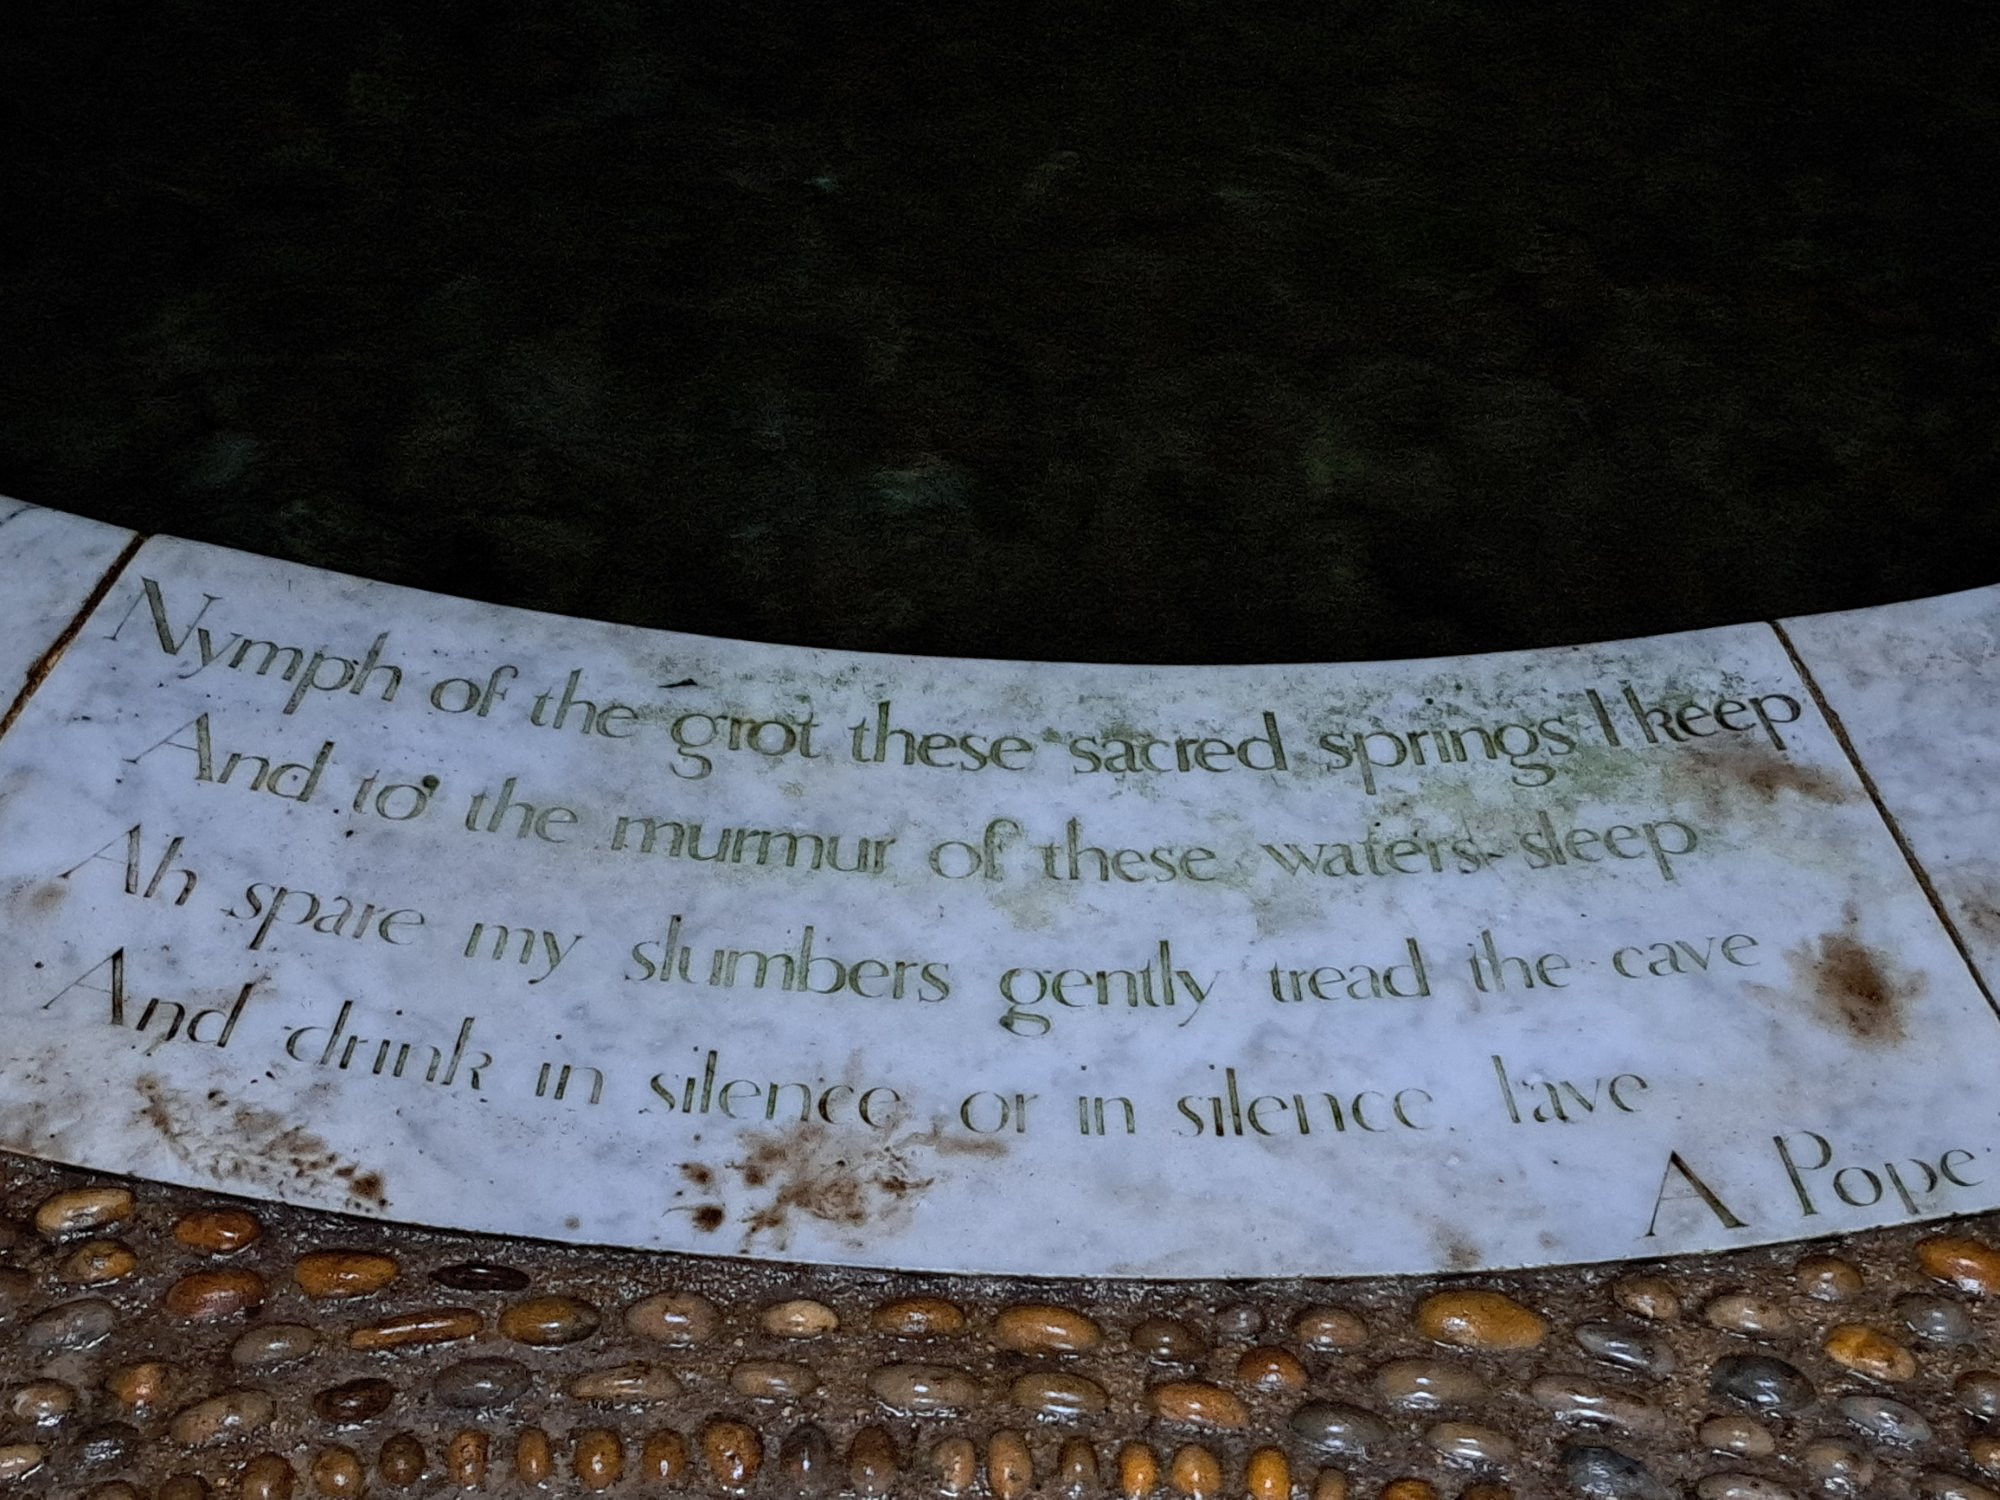 Nymph of the grot these sacred springs I keep
And to the murmur of these waters sleep
Ah spare my slumbers gently tread the cave
And drink in silence or in silence lave
A Pope